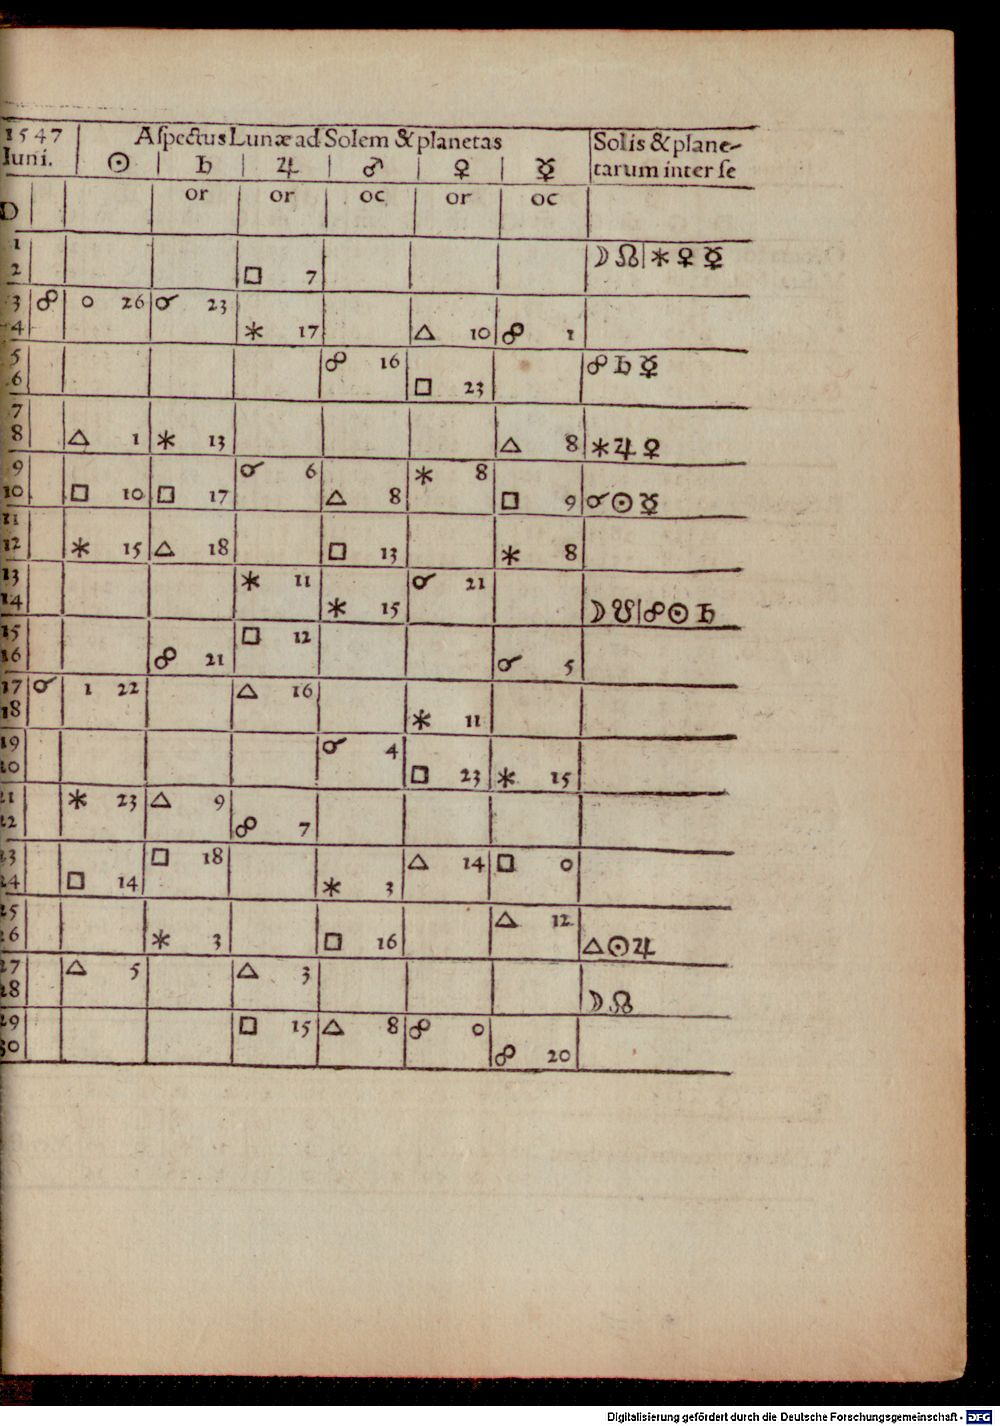 1547 | Aſpectus Lunæ ad Solem & planetas | Solis & plane-
Iuni. | ☉ | ♄ | ♃ | ♂ | ♀ | ☿ | tarum inter ſe
D | | | or | or | oc | or | oc |
1 | | | | | | | | ☽ ☊ | ⚹ ♀ ☿
2 | | | | □ 7 | | | |
3 | ☍ | 0 26 | ☌ 23 | | | | |
4 | | | | ⚹ 17 | | △ 10 | ☍ 1 |
5 | | | | | ☍ 16 | | | ☍ ♄ ☿
6 | | | | | | □ 23 | |
7
8 | | △ 1 | ⚹ 13 | | | | △ 8 | ⚹ ♃ ♀
9 | | | | ☌ 6 | | ⚹ 8 | |
10 | | □ 10 | □ 17 | | △ 8 | | □ 9 | ☌ ☉ ☿
11
12 | | ⚹ 15 | △ 18 | | □ 13 | | ⚹ 8 |
13 | | | | ⚹ 11 | | ☌ 21 | |
14 | | | | | ⚹ 15 | | | ☽ ☋ | ☍ ☉ ♄
15 | | | | □ 12 | | | |
16 | | | ☍ 21 | | | | ☌ 5 |
17 | ☌ | 1 22 | | △ 16 | | | |
18 | | | | | | ⚹ 11 | |
19 | | | | | ☌ 4 | | |
20 | | | | | | □ 23 | ⚹ 15 |
21 | | ⚹ 23 | △ 9 | | | | |
22 | | | | ☍ 7 | | | |
23 | | | □ 18 | | | △ 14 | □ 0 |
24 | | □ 14 | | | ⚹ 3 | | |
25 | | | | | | | △ 12 |
26 | | | ⚹ 3 | | □ 16 | | | △ ☉ ♃
27 | | △ 5 | | △ 3 | | | |
28 | | | | | | | | ☽ ☊
29 | | | | □ 15 | △ 8 | ☍ 0 | |
30 | | | | | | | ☍ 20 |
Digitalisierung gefördert durch die Deutsche Forschungsgemeinschaft - DFG